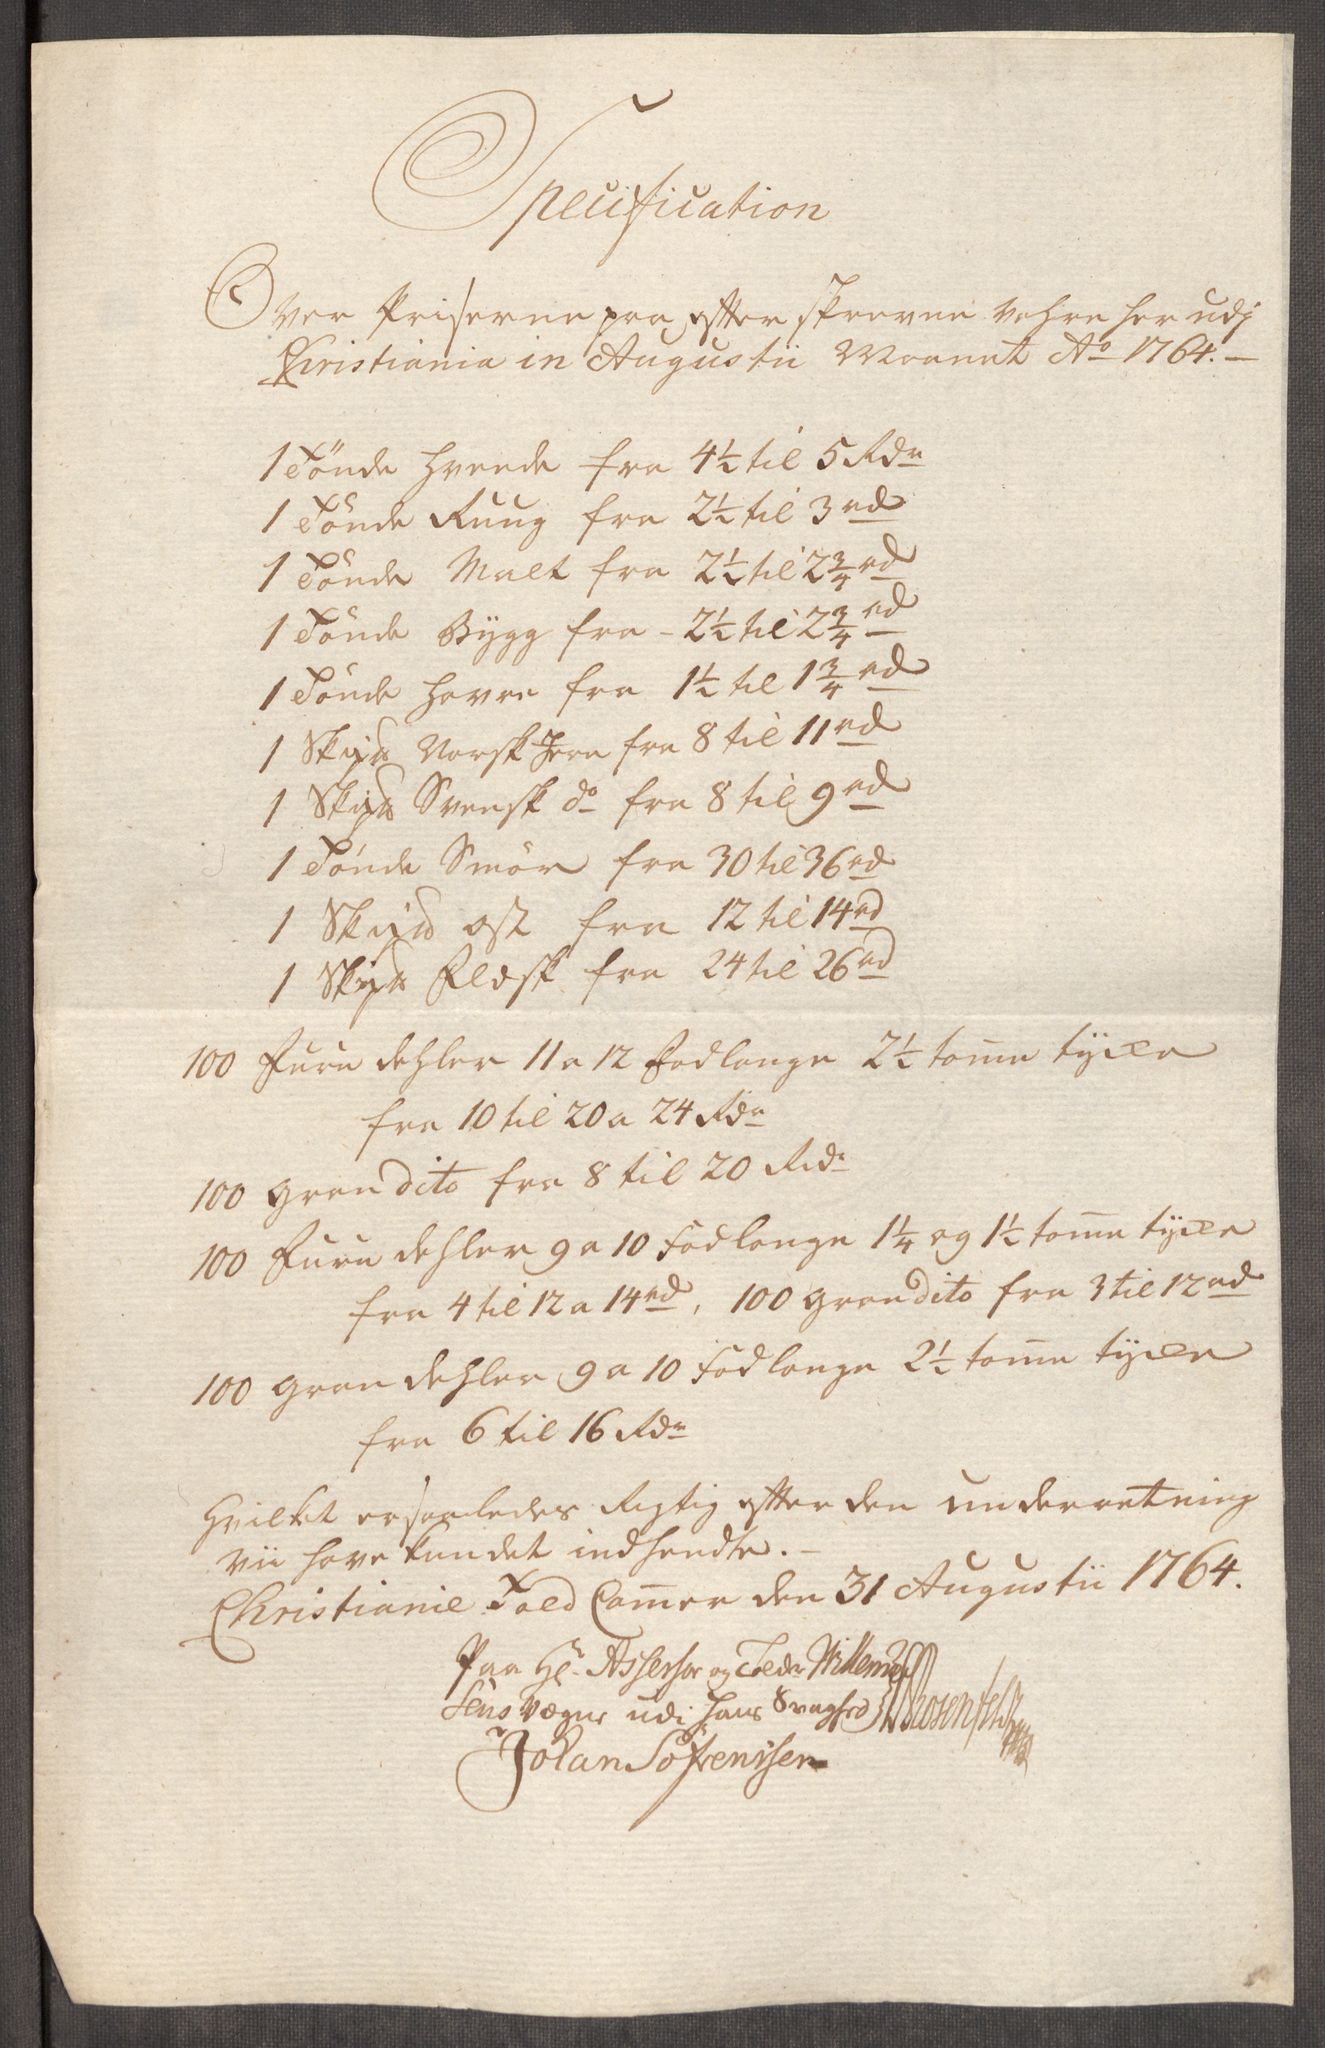 Specification
Over Priserne paa efterskrevne vahre her udj
Christiania in Augustii Maanet Ao 1764.
1 Tönde Hveede fra 4½ til 5 Rdr
1 Tönde Ruug fra 2½ til 3 rd
1 Tönde Malt fra 2½ til 2¾ rd
1 Tönde Bÿgg fra - 2½ til 2¾ rd
1 Tönde Havre fra 1½ til 1¾ rd
1 Skpd Norsk Jern fra 8 til 11 rd
1 Skpd Svensk do fra 8 til 9 rd
1 Tönde Smör fra 30 til 36 rd
1 Skpd ost fra 12 til 14 rd
1 Skpd Flesk fra 24 til 26 rd
100 Furu dehler 11 a 12 Fod lange 2½ tom̄e tÿcke
fra 10 til 20 a 24 Rdr
100 gran dito fra 8 til 20 Rdr
100 Furu dehler 9 a 10 Fod lange 1¼ og 1½ tom̄e tÿcke
fra 4 til 12 a 14 rd, 100 gran dito fra 3 til 12 rd
100 gran dehler 9 a 10 Fod lange 2½ tom̄e tÿcke
fra 6 til 16 Rdr
Hvilket er saaledes Rigtig efter den underretning
vii have kundet indhendte.
Christianie Told Cam̄er den 31 Augustii 1764.
Paa Hr Assessor og Tolder Willem
sens vægne udi hans Svaghed Rosenfeldt
Johan Söfrenssen